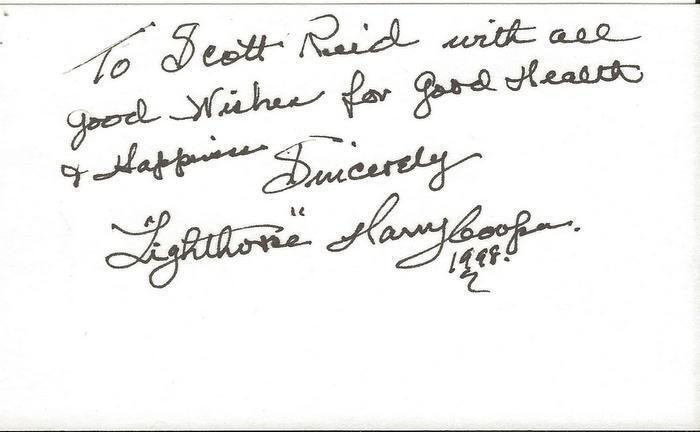 To Scott Reid with all
good Wishes for good Health
& Happiness Sincerely
"Lighthorse" Harry Cooper.
1998.